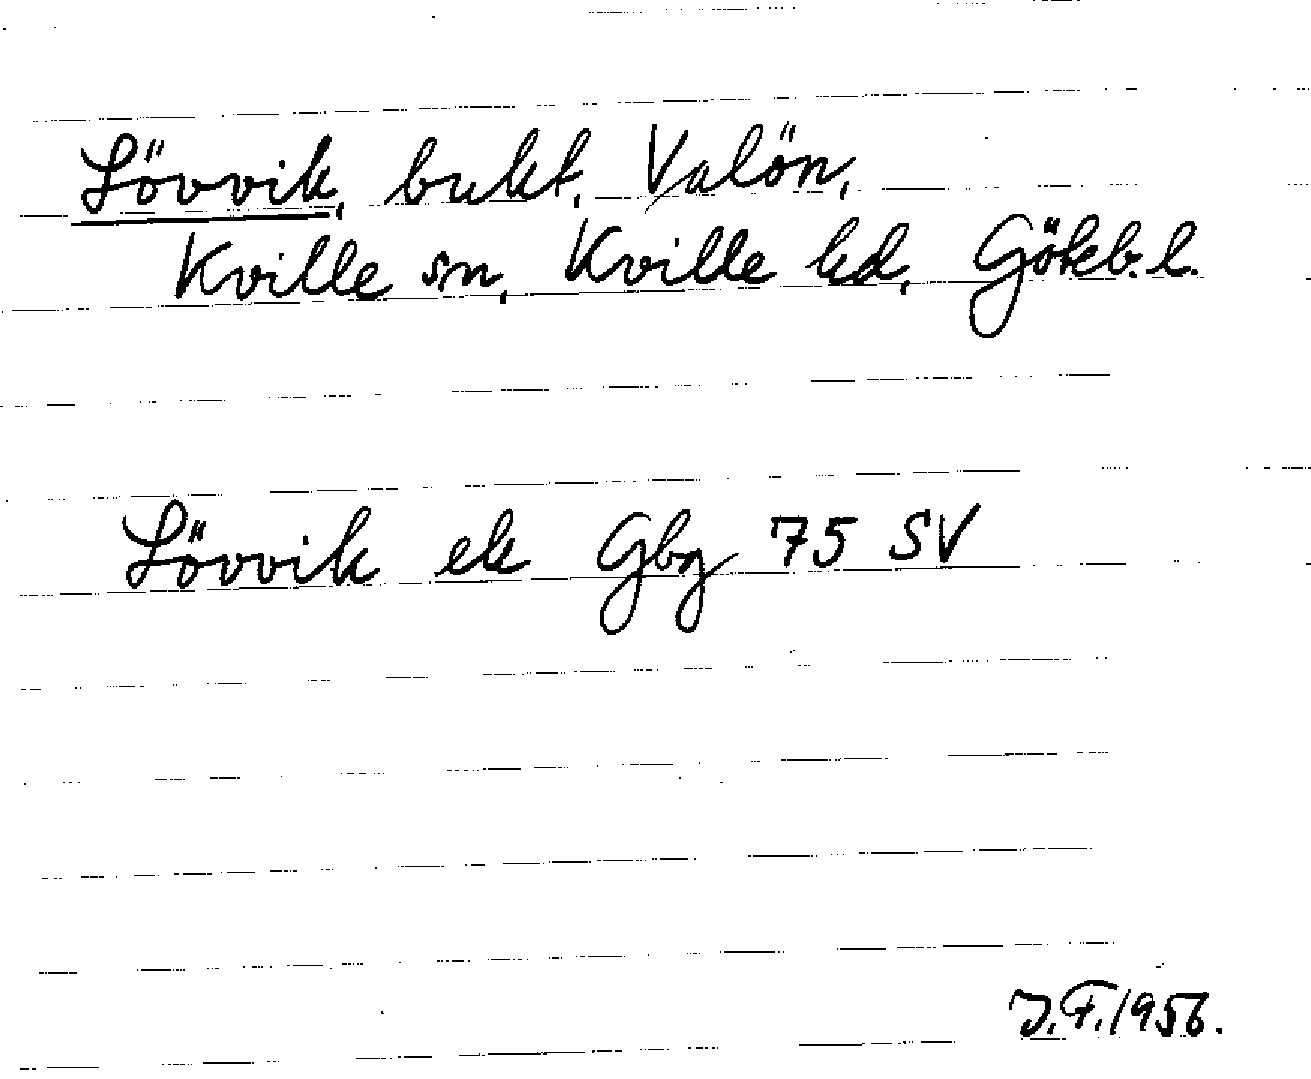 Lövvik, bukt, Valön,
Kville sn, Kville hd, Gökb. l.
Lövvik ek Gbg 75 SV
J.F. 1956.